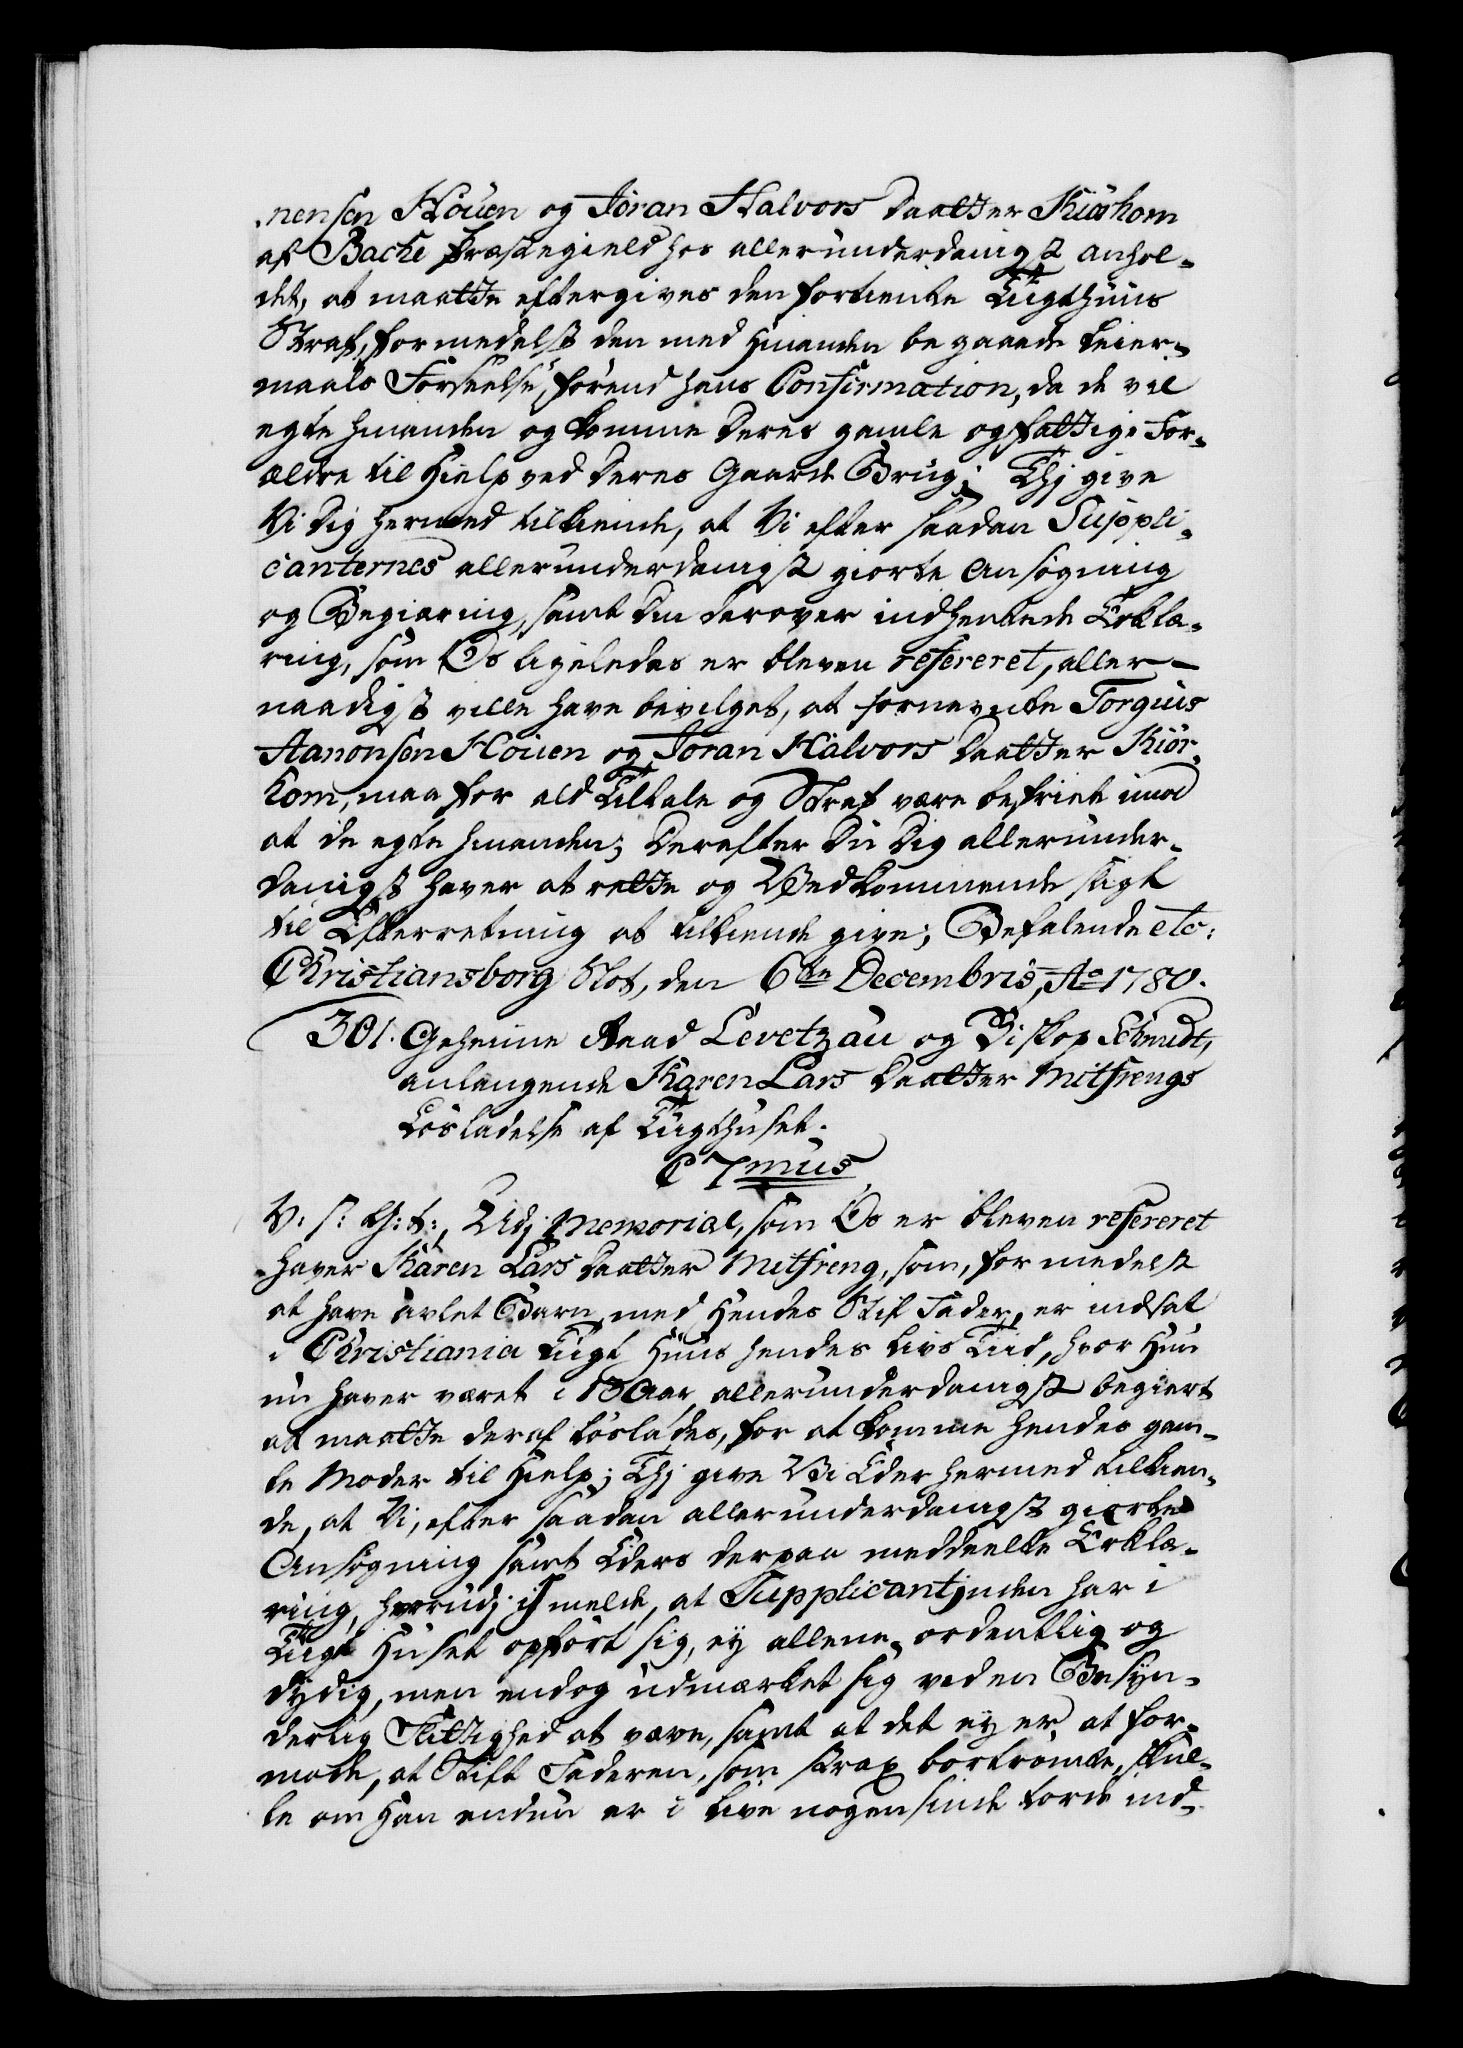 nensen Høuen og Jøran Halvors Daatter Kiørkom
af Bache Præstegield hos allerunderdanigst anhol-
det, at maatte eftergives den fortiente Tugthuus
Straf, formedelst den med hinanden begaaede Leier-
maals Forseelse, førend hans Confirmation, da de vil
egte hinanden og komme deres gamle og fattige For-
ældre til Hielp ved deres Gaards Brug; Thj give
Vi Dig hermed tilkiende, at Vi efter saadan Suppli-
canternes allerunderdanigst giorte Ansøgning
og Begiæring, samt Din derover indhentede Erklæ-
ring, som Os ligeledes er bleven refereret, aller-
naadigst ville have bevilget, at fornævnte Torguis
Aanonsen Høuen og Jøran Halvors Daatter Kiør-
kom, maa for ald Tiltale og Straf være befriet imod
at de egte hinanden; Derefter Du Dig allerunder-
danigst haver at rette og Vedkommende sligt
til Efterretning at tilkiende give; Befalende etc:
Christiansborg Slot, den 6te Decembris, Ao 1780.
301. Geheime Raad Levetzau og Biskop Schmidt,
anlangende Karen Lars Daatter Mitfrengs
Løsladelse af Tugthuset.
C 7mus
V: s: G: t:, Udj Memorial, som Os er bleven refereret
haver Karen Lars Daatter Mitfreng, som, formedelst
at have avlet Barn med Hendes Stif Fader, er indsat
i Christiania Tugt Huus hendes Livs Tiid, hvor Hun
nu haver været i 13 Aar, allerunderdanigst begiert
at maatte deraf løslades, for at komme hendes gam-
le Moder til Hielp; Thj give Vi Eder hermed tilkien-
de, at Vi, efter saadan allerunderdanigst giorte
Ansøgning samt Eders derpaa meddeelte Erklæ-
ring, hvorudj melde, at Supplicantjnden har i
Tugt Huset opført sig, ey allene ordentlig og
dydig, men endog udmærket sig ved en Besyn-
derlig Flittighed at være, samt at det ey er at for-
mode, at Stift Faderen, som strax bortrømte, skul-
le om Han endnu er i Live nogensinde torde ind-